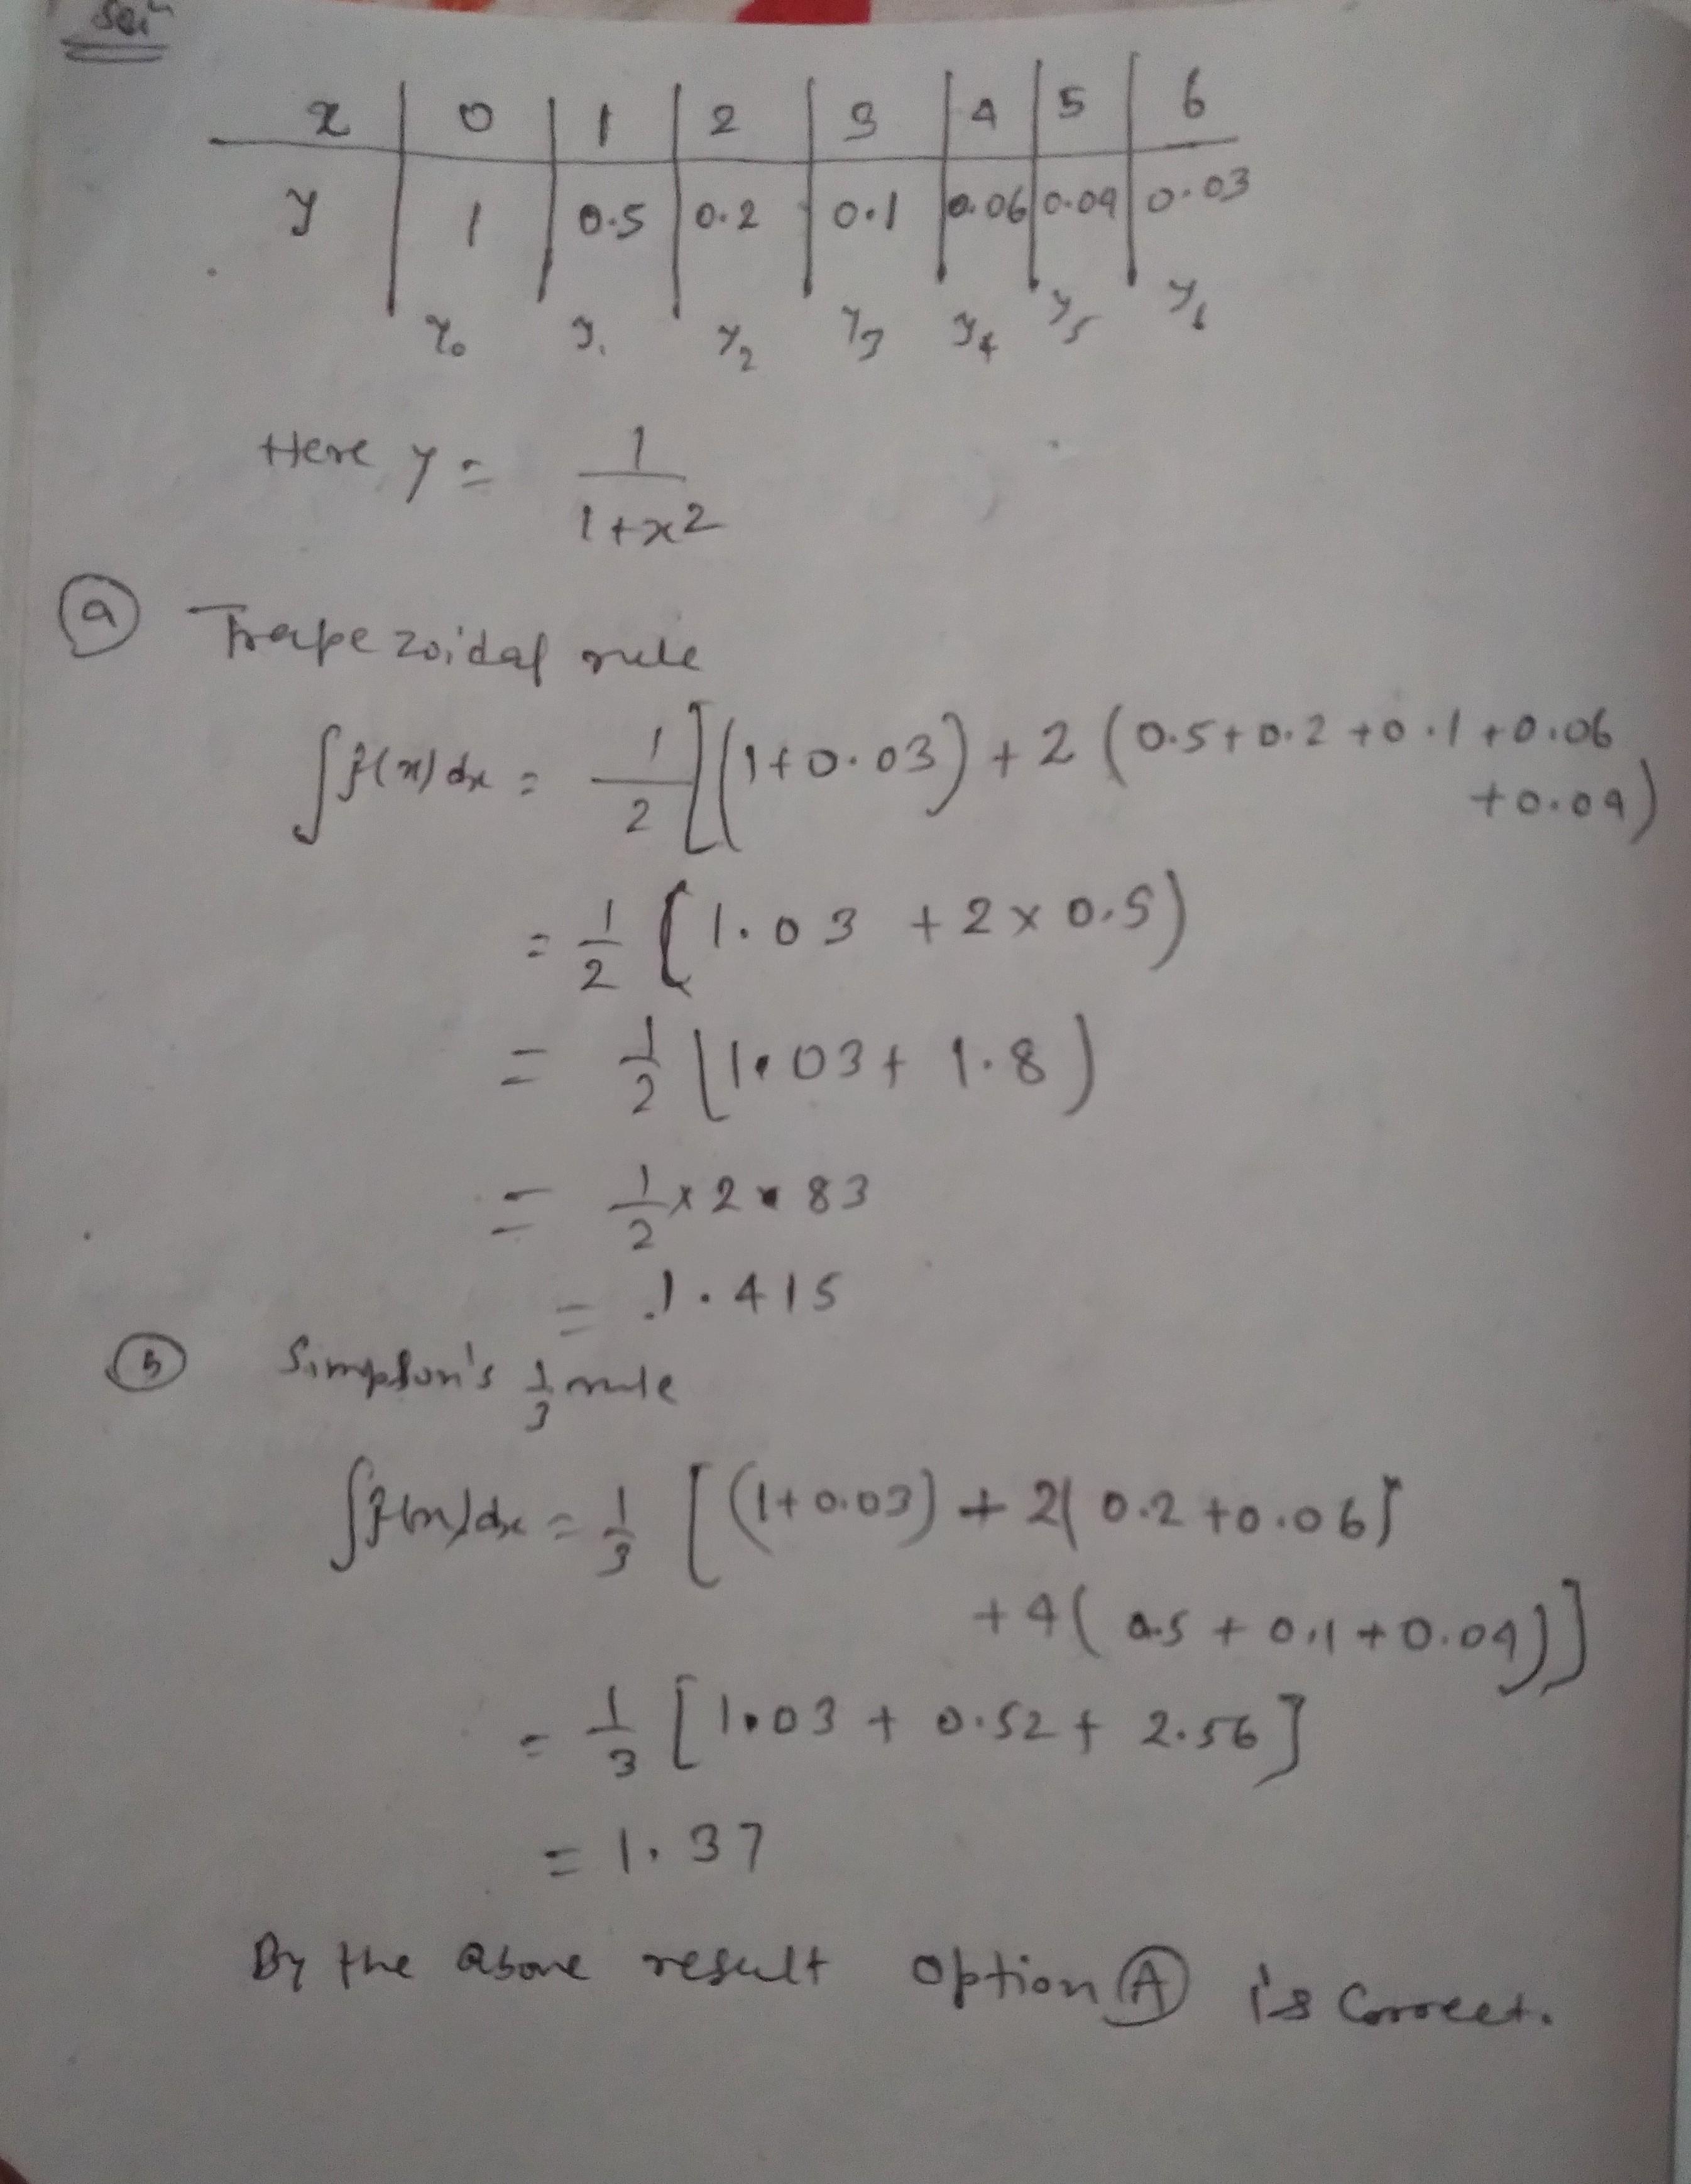 Sol^n
x | 0 | 1 | 2 | 3 | 4 | 5 | 6
y | 1 | 0.5 | 0.2 | 0.1 | 0.06 | 0.04 | 0.03
y₀ y₁ y₂ y₃ y₄ y₅ y₆
Here y = 1/(1+x²)
(a) Trapezoidal rule
∫f(x)dx = 1/2 [(1+0.03) + 2(0.5+0.2+0.1+0.06
+0.04)
= 1/2 (1.03 + 2×0.5)
= 1/2 (1.03 + 1.8)
= 1/2 × 2.83
= 1.415
(b) Simpson's 1/3 rule
∫f(x)dx = 1/3 [(1+0.03) + 2(0.2+0.06)
+4(0.5+0.1+0.04)]
= 1/3 [1.03 + 0.52 + 2.56]
= 1.37
By the above result option (A) is Correct.